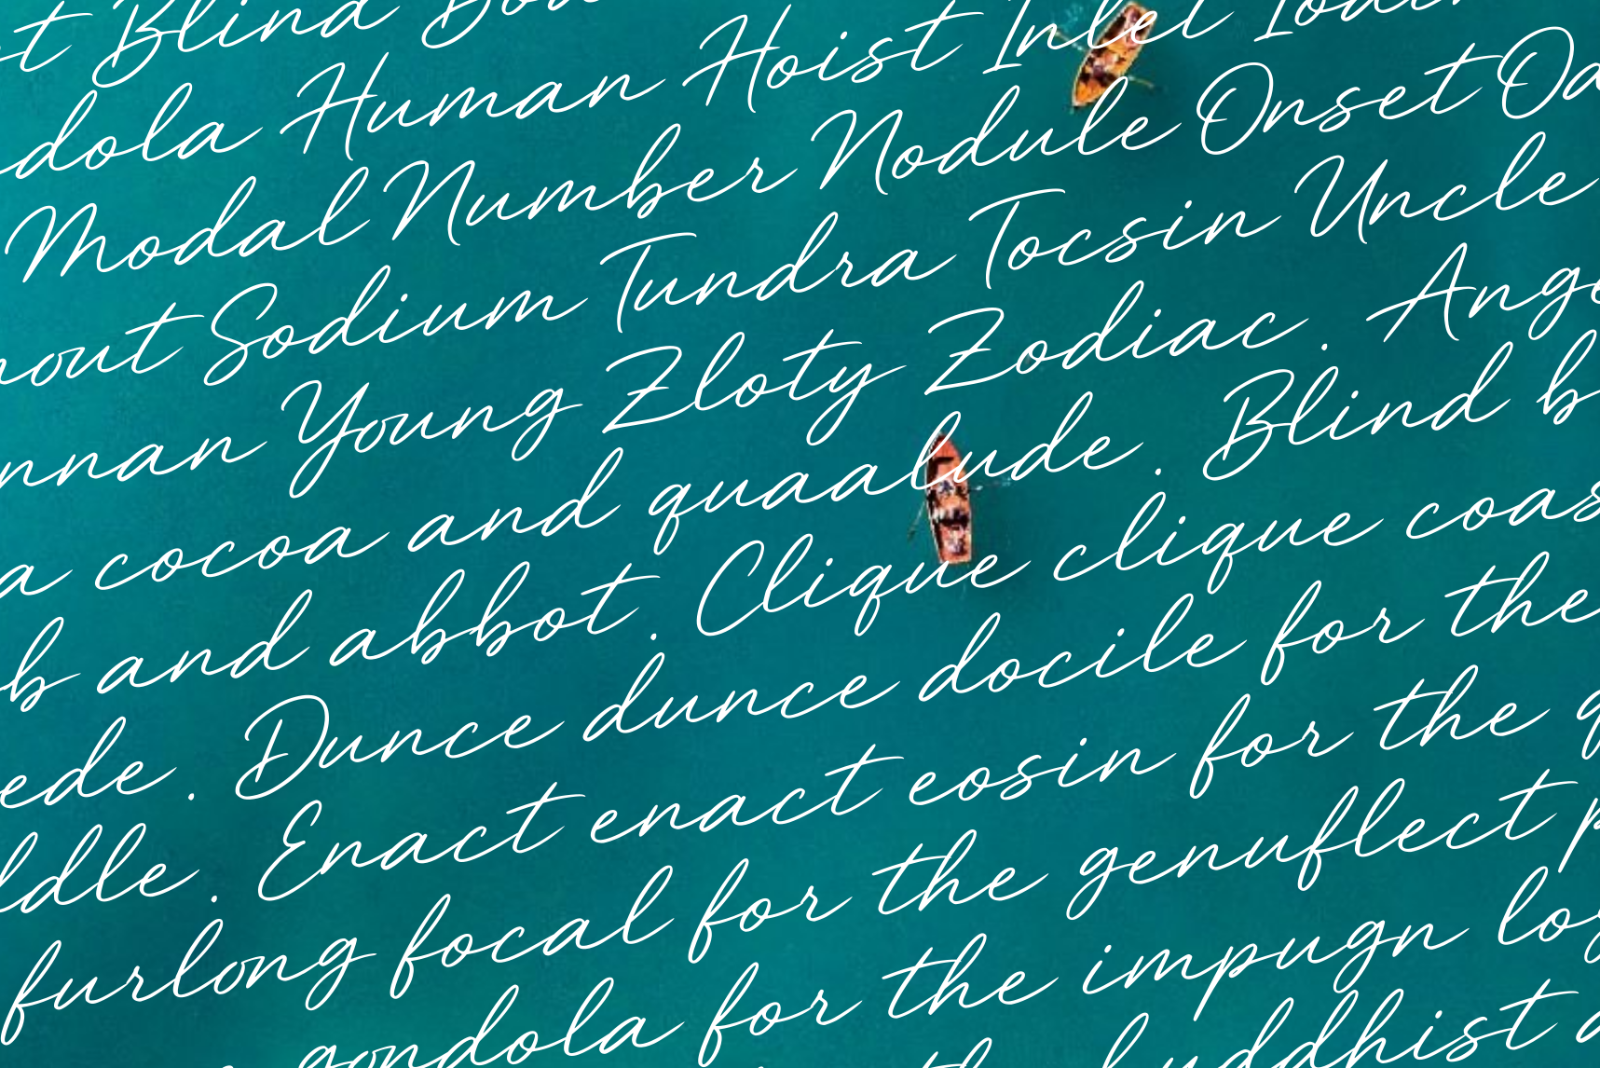 Blind
Human Hoist Inlet
Modal Number Nodule Onset
Sodium Tundra Tocsin Uncle
Young Zloty Zodiac.
cocoa and quaalude. Blind
and abbot. Clique clique
Dunce dunce docile for the
Enact enact eosin for the
furlong focal for the genuflect
gondola for the impugn